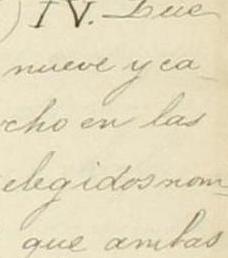 ) IV. Que
nueve y ca-
cho en las
elegidos nom-
que ambas